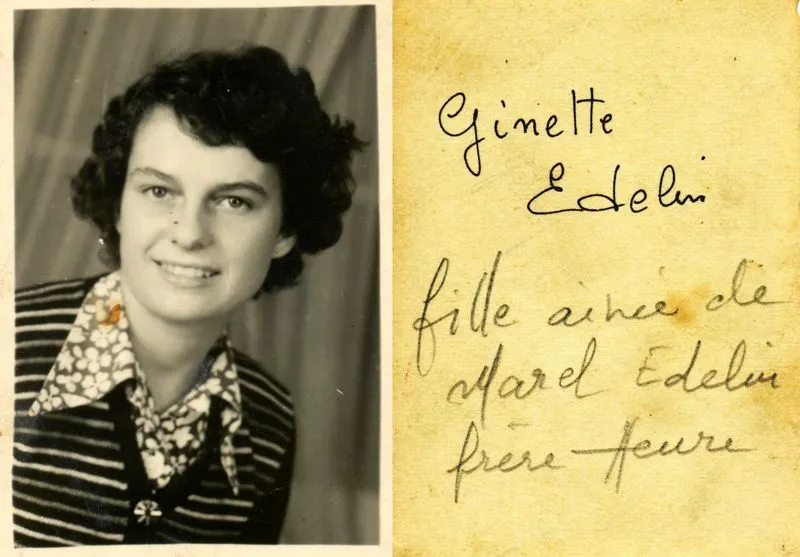 Ginette
Edelin
fille ainée de
Marel Edelin
frère Heure